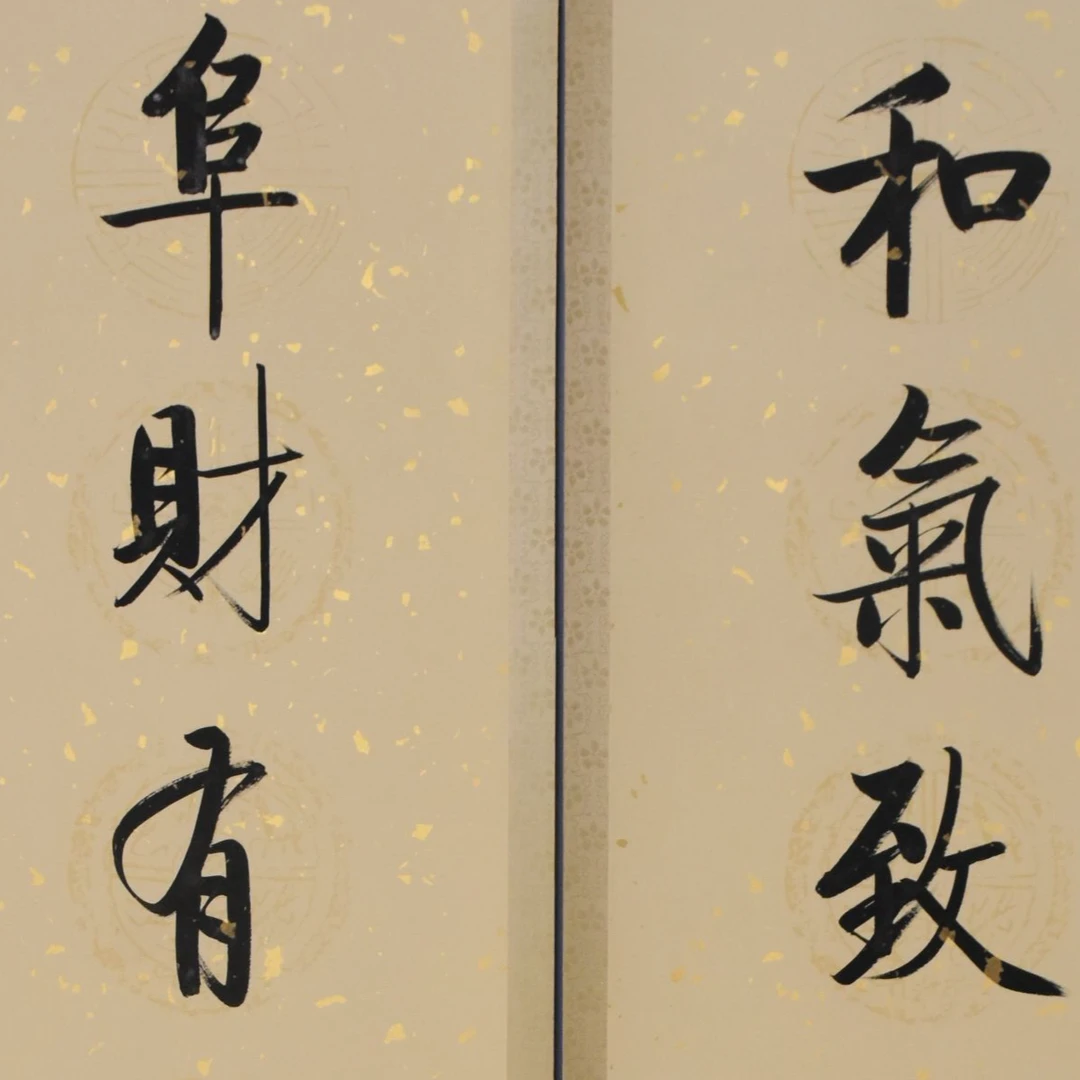 和氣致
阜財有